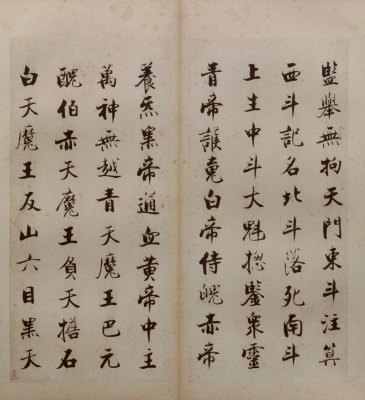 監舉無拘天門東斗注筭
西斗記名北斗落死南斗
上生中斗大魁揔鑒衆靈
青帝護䰟白帝侍魄赤帝
養炁黑帝通血黃帝中主
萬神無越青天魔王巴元
醜伯赤天魔王負天擔石
白天魔王反山六目黑天